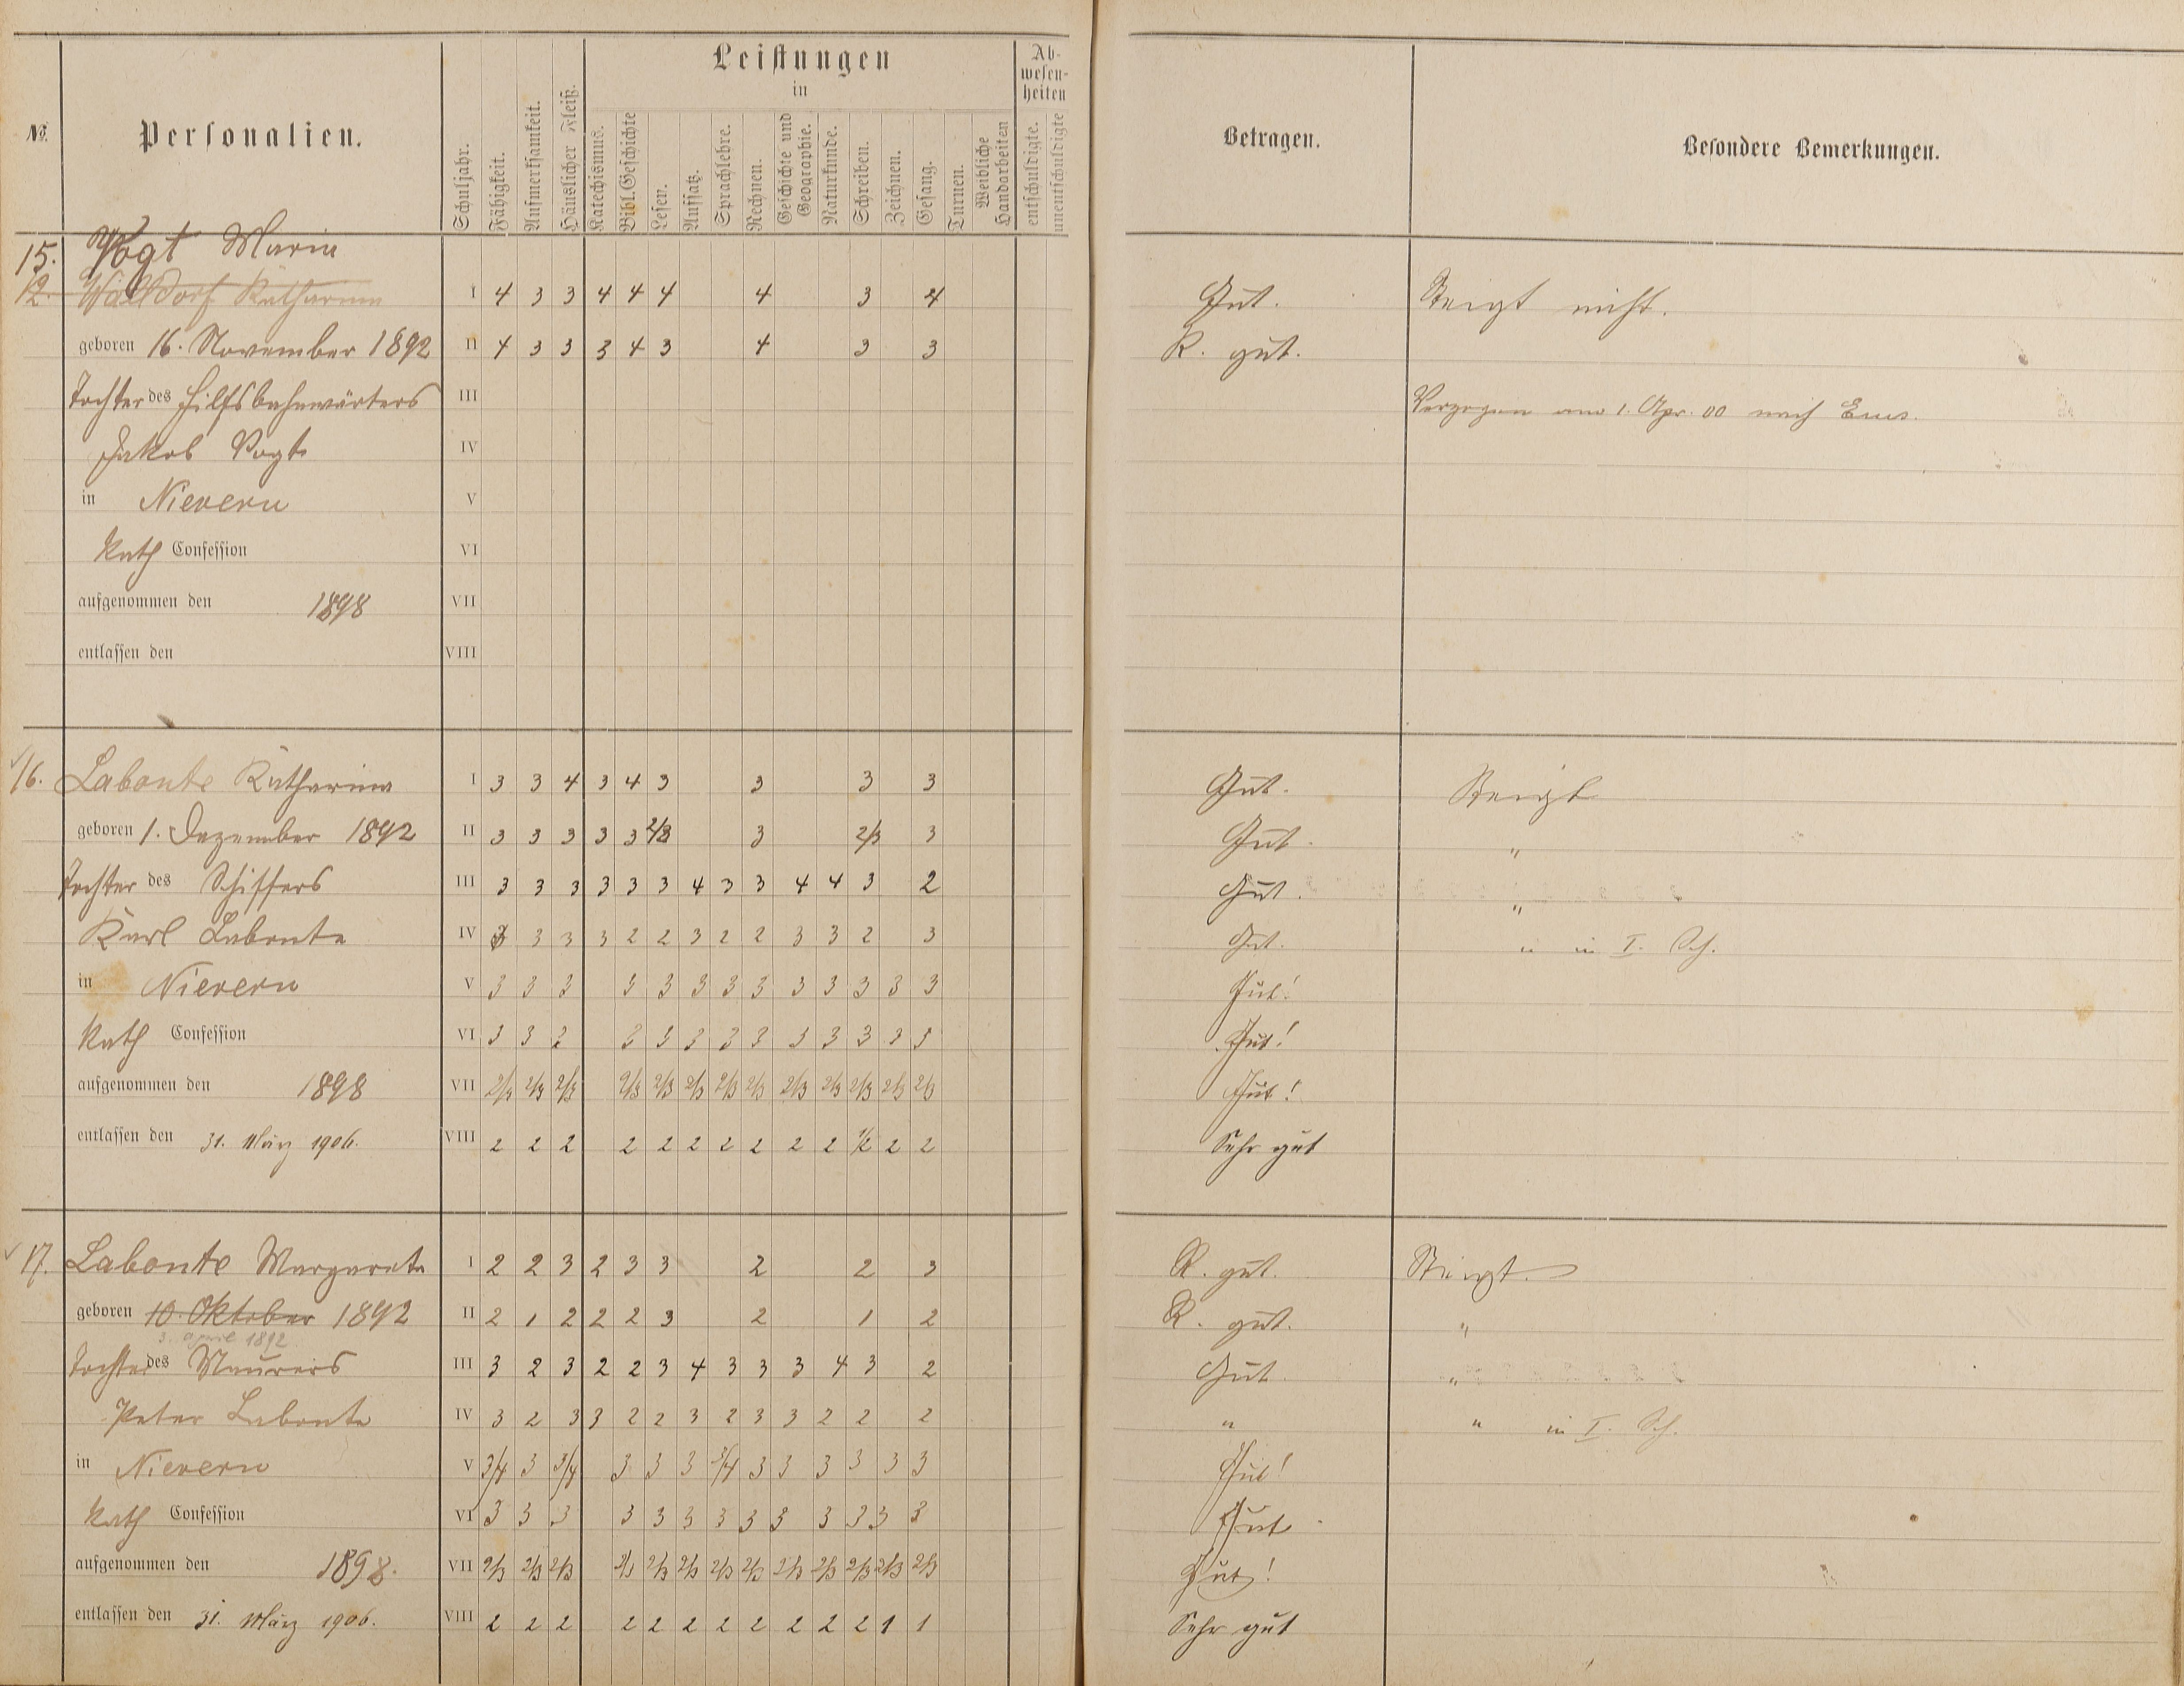 No. Personalien. Schuljahr. Fähigkeit. Aufmerksamkeit. Häuslicher Fleiß. Leistungen in Katechismus. Bibl. Geschichte Lesen. Aufsatz. Sprachlehre. Rechnen. Geschichte und Geographie. Naturkunde. Schreiben. Zeichnen. Gesang. Turnen. Weibliche Handarbeiten Abwesenheiten entschuldigte. unentschuldigte Betragen. Besondere Bemerkungen.
15. Vogt Maria
12. Walldorf Katharina I 4 3 3 4 4 4 4 3 4 Gut. Steigt nicht.
geboren 16. November 1892 II 4 3 3 3 4 3 4 3 3 R. gut.
Tochter des Hilfsbahnwärters III Verzogen am 1. Apr. 00 nach Ems.
Jakob Vogt IV
in Nievern V
Kath Confession VI
aufgenommen den 1898 VII
entlassen den VIII
16. Labonte Katharina I 3 3 4 3 4 3 3 3 3 Gut. Steigt
geboren 1. Dezember 1892 II 3 3 3 3 3 2/3 3 2/3 3 Gut. "
Tochter des Schiffers III 3 3 3 3 3 3 4 3 3 4 4 3 2 Gut. "
Karl Labonte IV 3 3 3 3 2 2 3 2 2 3 3 2 3 Gut. " in I. Sch.
in Nievern V 3 3 3 3 3 3 3 3 3 3 3 3 3 Gut!
Kath Confession VI 3 3 3 3 3 3 3 3 3 3 3 3 3 Gut!
aufgenommen den 1898 VII 2/3 2/3 2/3 2/3 2/3 2/3 2/3 2/3 2/3 2/3 2/3 2/3 2/3 Gut!
entlassen den 31. März 1906. VIII 2 2 2 2 2 2 2 2 2 2 1/2 2 2 Sehr gut
17. Labonte Margareta I 2 2 3 2 3 3 2 2 3 R. gut. Steigt.
geboren 10. Oktober 1892 II 2 1 2 2 2 3 2 1 2 R. gut. "
3. April 1892.
Tochter des Maurers III 3 2 3 2 2 3 4 3 3 3 4 3 2 Gut. "
Peter Labonte IV 3 2 3 3 2 2 3 2 3 3 2 2 2 " " in I. Sch.
in Nievern V 3/4 3 3/4 3 3 3 3/4 3 3 3 3 3 3 Gut!
Kath Confession VI 3 3 3 3 3 3 3 3 3 3 3 3 3 Gut.
aufgenommen den 1898. VII 2/3 2/3 2/3 2/3 2/3 2/3 2/3 2/3 2/3 2/3 2/3 2/3 2/3 Gut!
entlassen den 31. März 1906. VIII 2 2 2 2 2 2 2 2 2 2 2 1 1 Sehr gut